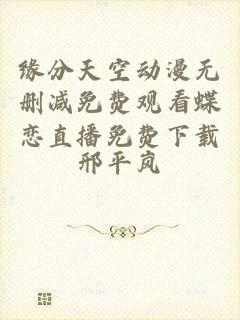 缘分天空动漫无
删减免费观看蝶
恋直播免费下载
邢平岚